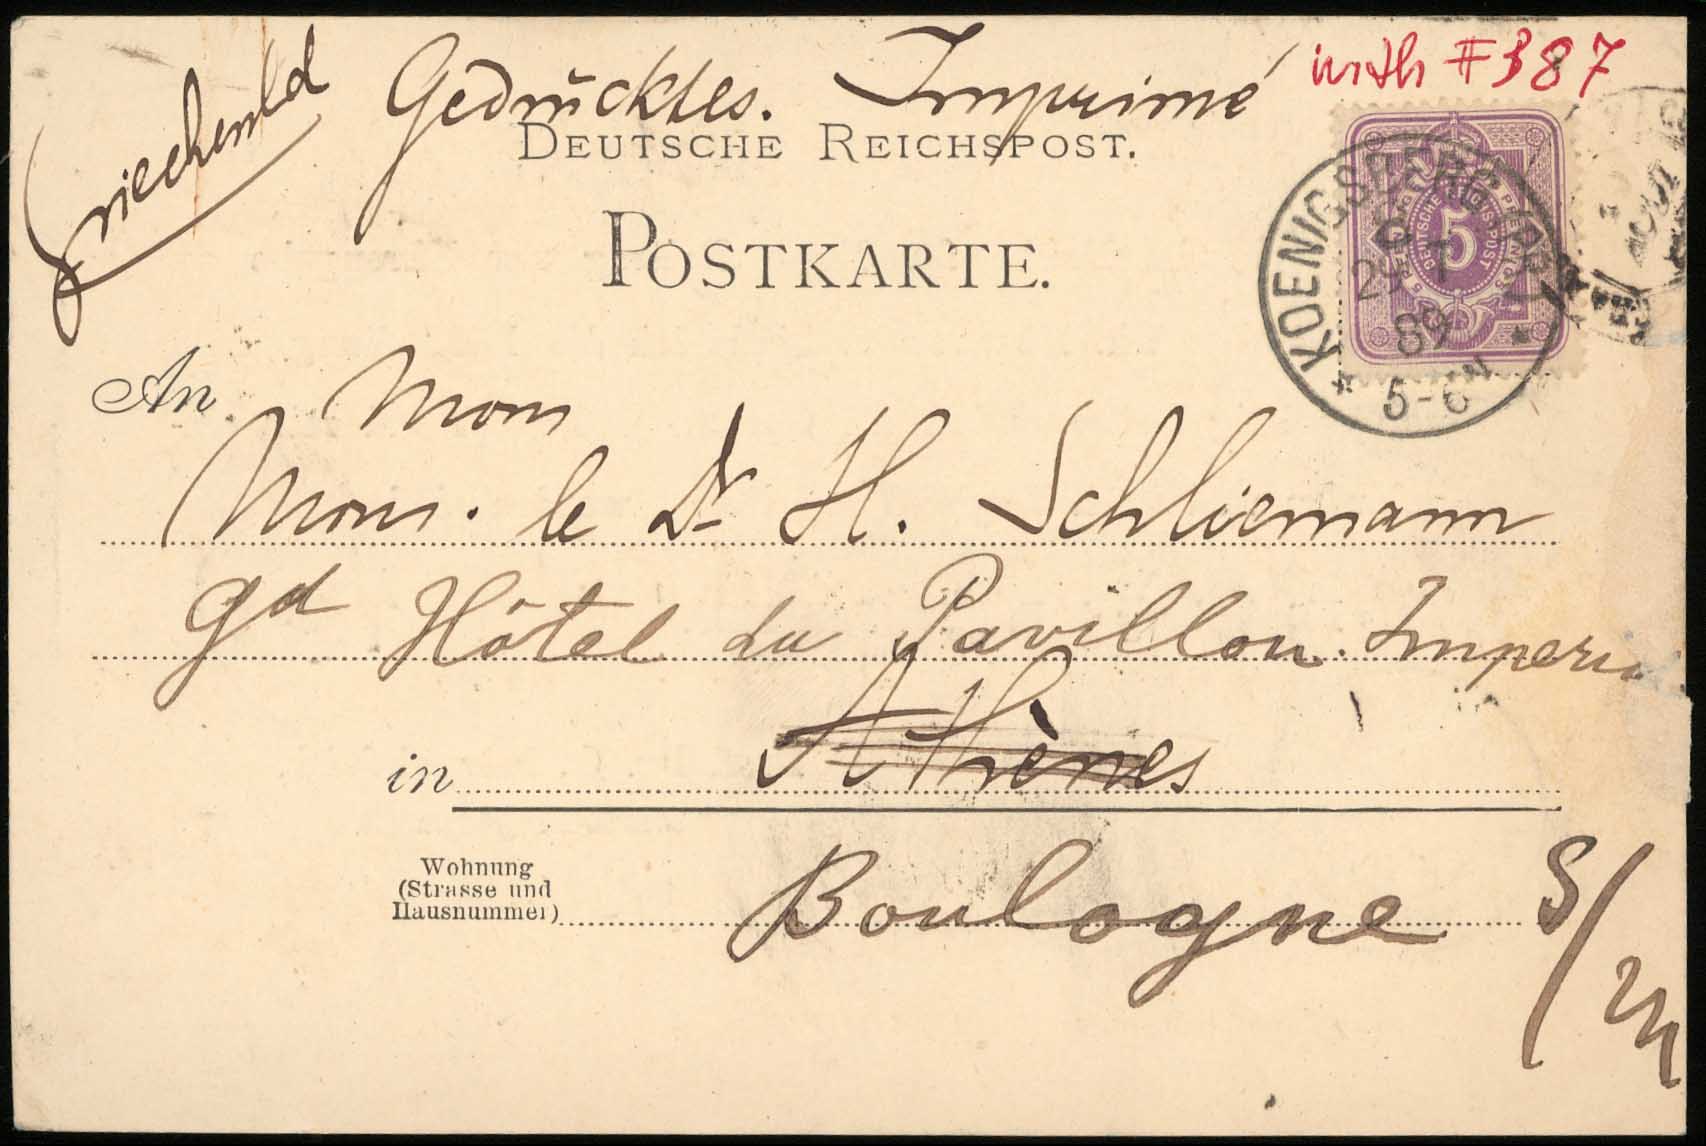 Griechenld
Gedrucktes. Imprimé
with #387
DEUTSCHE REICHSPOST.
POSTKARTE.
5
DEUTSCHE REICHS-POST
KOENIGSBERG
29 7
89
5-6 N
An Mons
Mons. le Dr H. Schliemann
gd Hôtel du Pavillon Imperia
in Athènes
Wohnung
(Strasse und
Hausnummer)
Boulogne S/